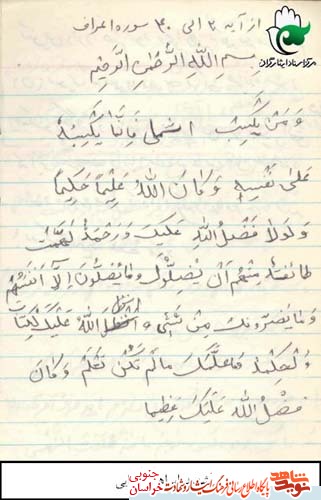 از آیه ۲ الی ۳۰ سوره اعراف
مرکز اسناد ایثارگران
بِسمِ اللهِ الرَّحمٰنِ الرَّحیمِ
وَ مَنْ یَکْسِبْ اثماً فَاِنَّما یَکْسِبُهُ
عَلیٰ نَفْسِهِ وَ کانَ اللهُ عَلیماً حَکیماً
وَ لَولا فَضْلُ اللهِ عَلَیکَ وَ رَحْمَتُهُ لَهَمَّت
طائفَةٌ مِنْهُم اَنْ یُضِلُّوکَ وَ ما یُضِلُّونَ اِلّا اَنفُسَهُم
وَ ما یَضُرّونَکَ مِن شَیءٍ وَ انزَلَ اللهُ عَلَیْکَ الکِتابَ
وَ الحِکمَةَ وَ عَلَّمَکَ مالَم تَکُنْ تَعْلَمُ وَ کانَ
فَضْلُ اللهِ عَلَیْکَ عَظِیما
نوید شاهد
پایگاه اطلاع رسانی فرهنگ ایثار و شهادت
خراسان جنوبی